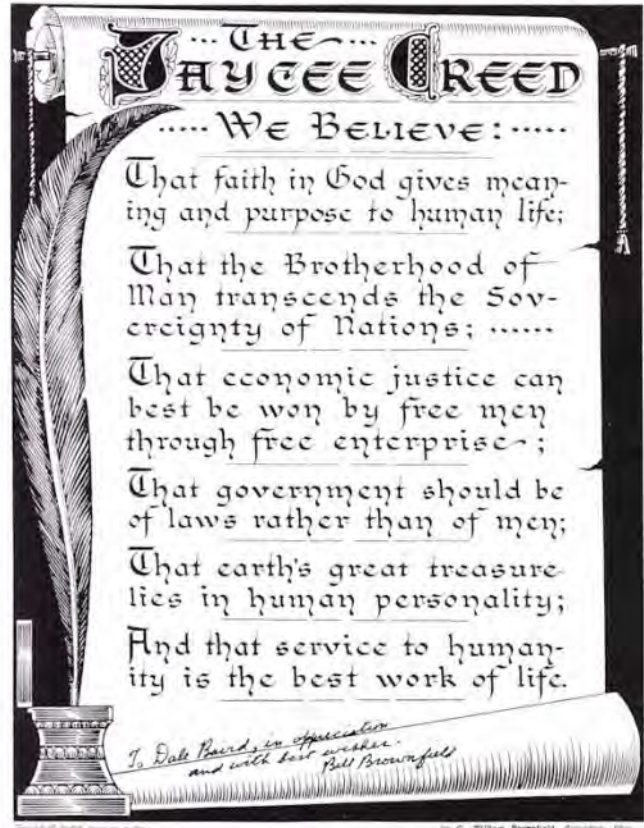 THE
JAYCEE CREED
WE BELIEVE:
That faith in God gives mean-
ing and purpose to human life;
That the Brotherhood of
Man transcends the Sov-
ereignty of Nations;
That economic justice can
best be won by free men
through free enterprise;
That government should be
of laws rather than of men;
That earth's great treasure
lies in human personality;
And that service to human-
ity is the best work of life.
To Dale Baird, in appreciation
and with best wishes.
Bill Brownfield